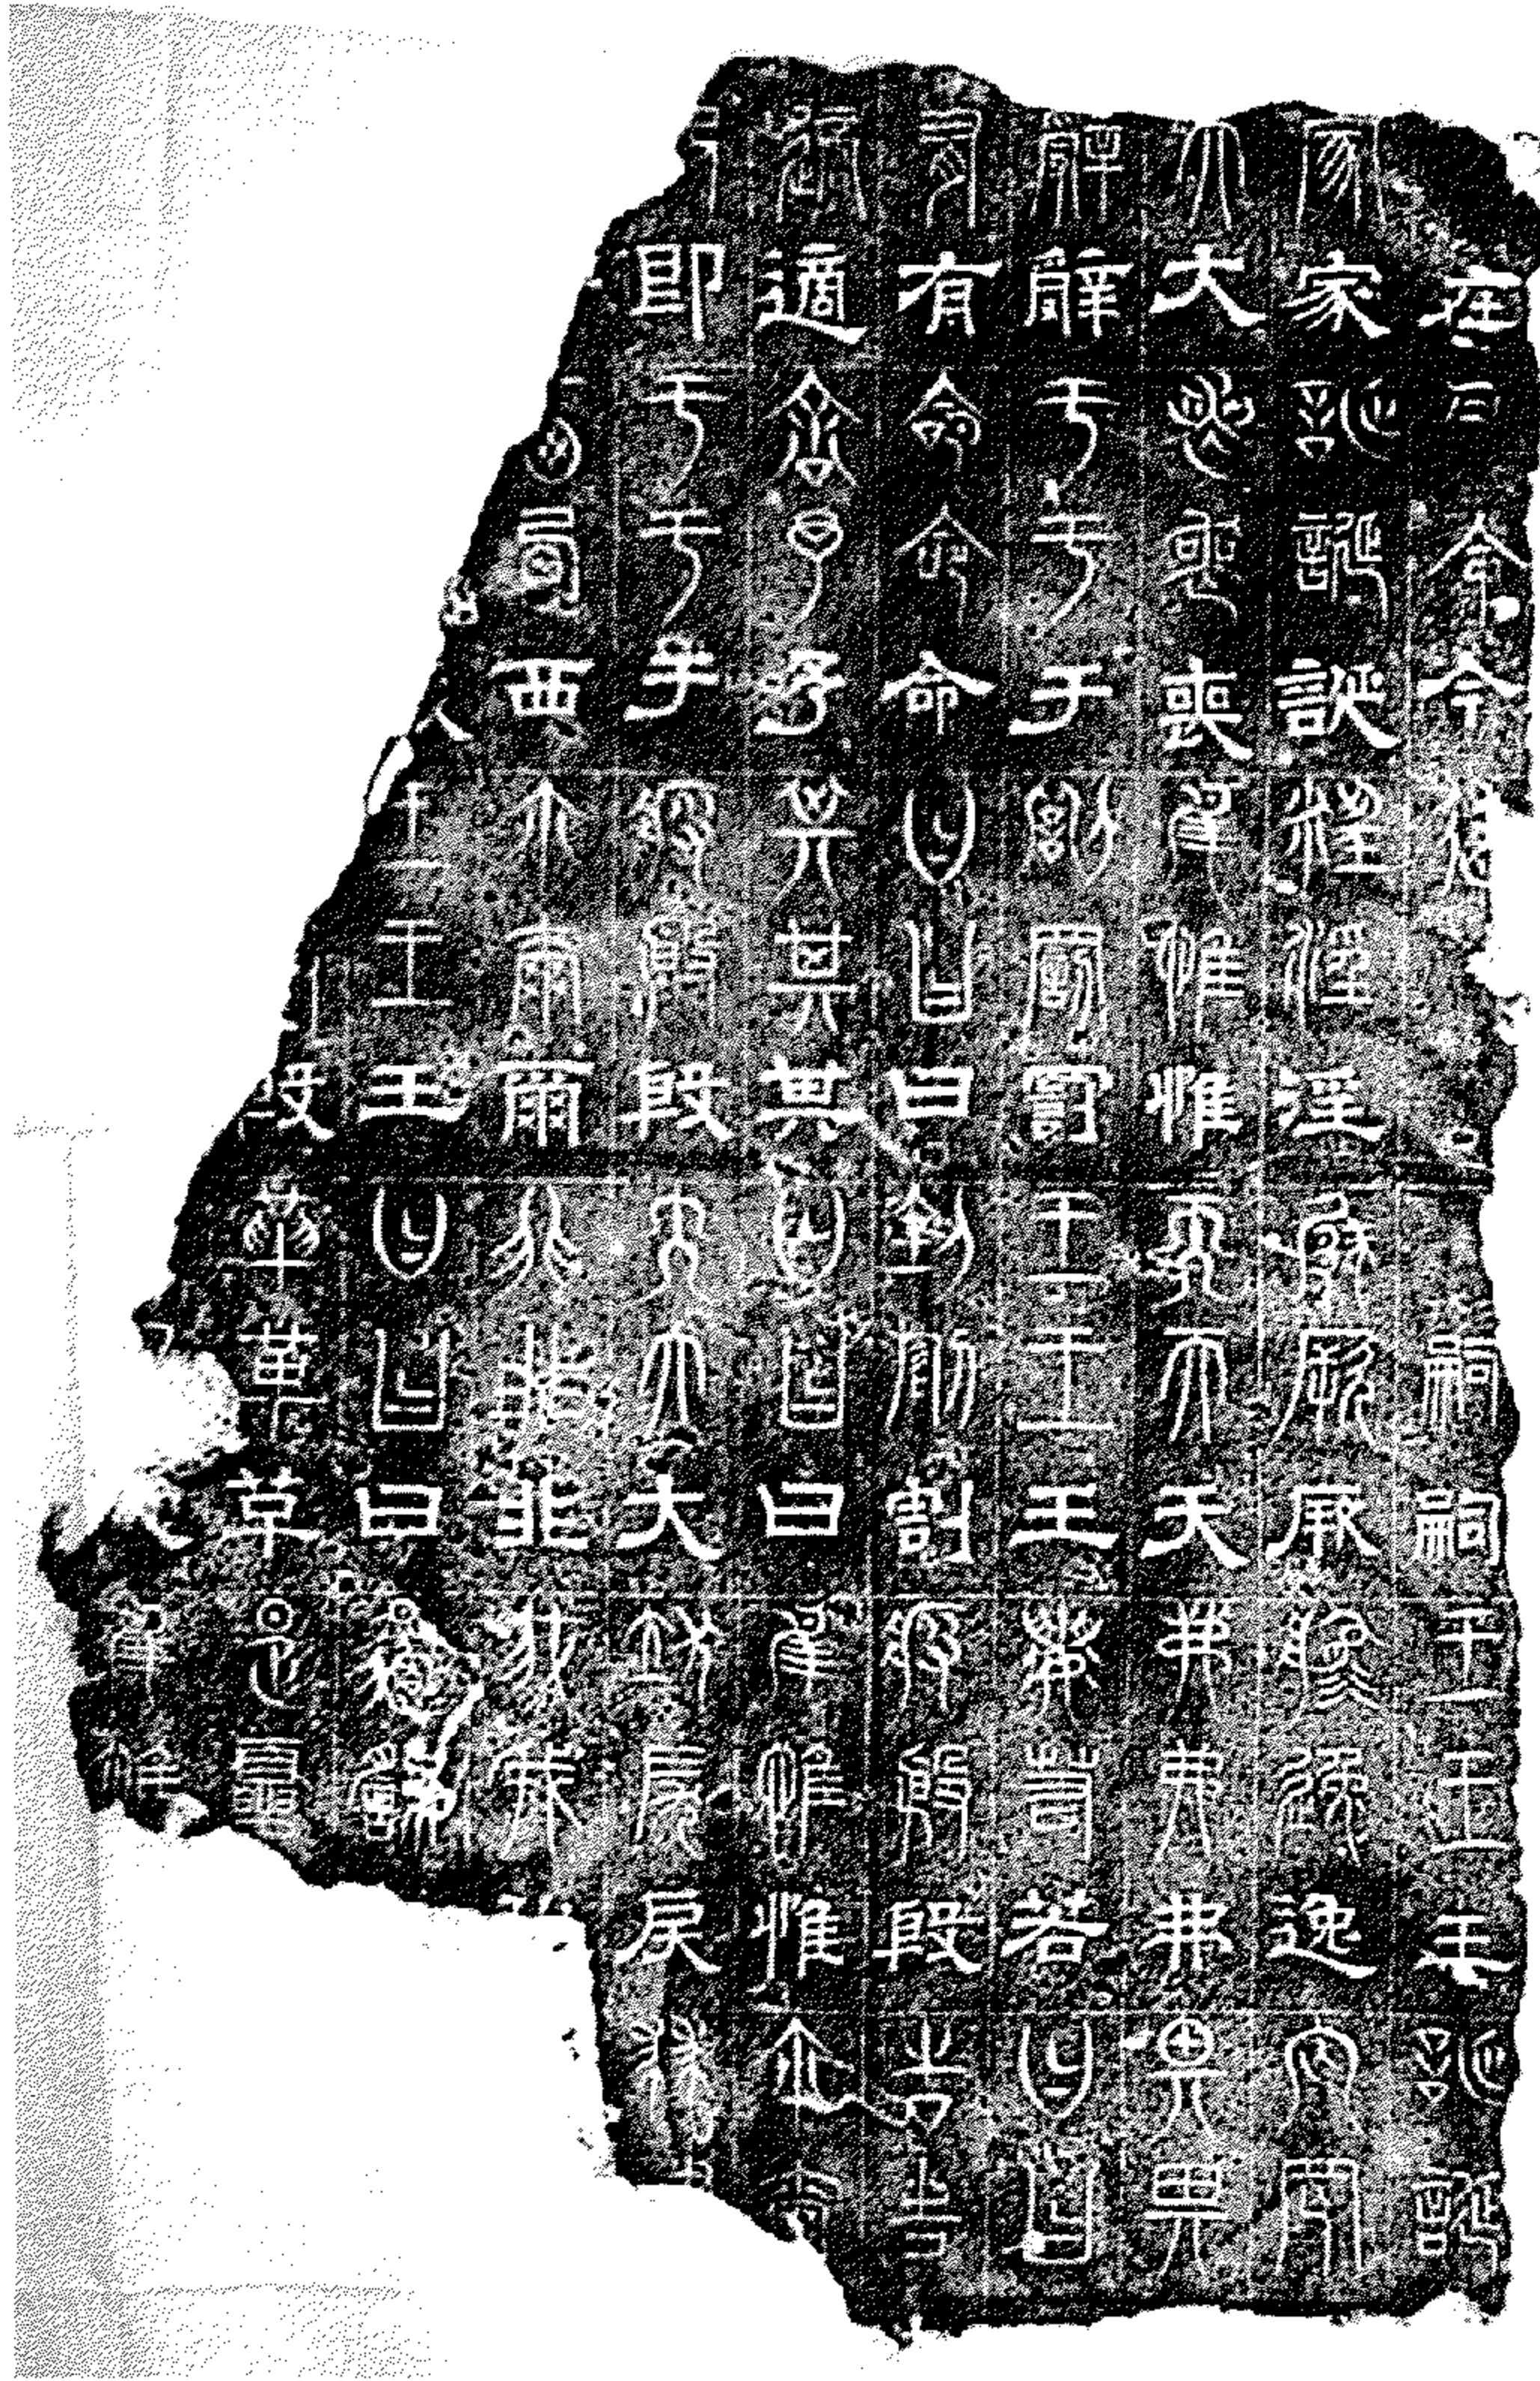 在今今後嗣嗣王王王誕誕
家家誕誕誕淫淫淫厥厥厥逸逸逸罔罔
大大喪喪喪惟惟惟天天天弗弗弗畀畀
辭辭于于于罰罰罰王王王若若若曰曰
有有命命命曰曰曰割割割殷殷殷告告
適適予予予其其其曰曰曰惟惟惟爾爾
即即于于于殷殷殷大大大戾戾戾肆肆
西西西爾爾爾非非非我我
人王王王曰曰曰
殷革革革夏夏
惟惟